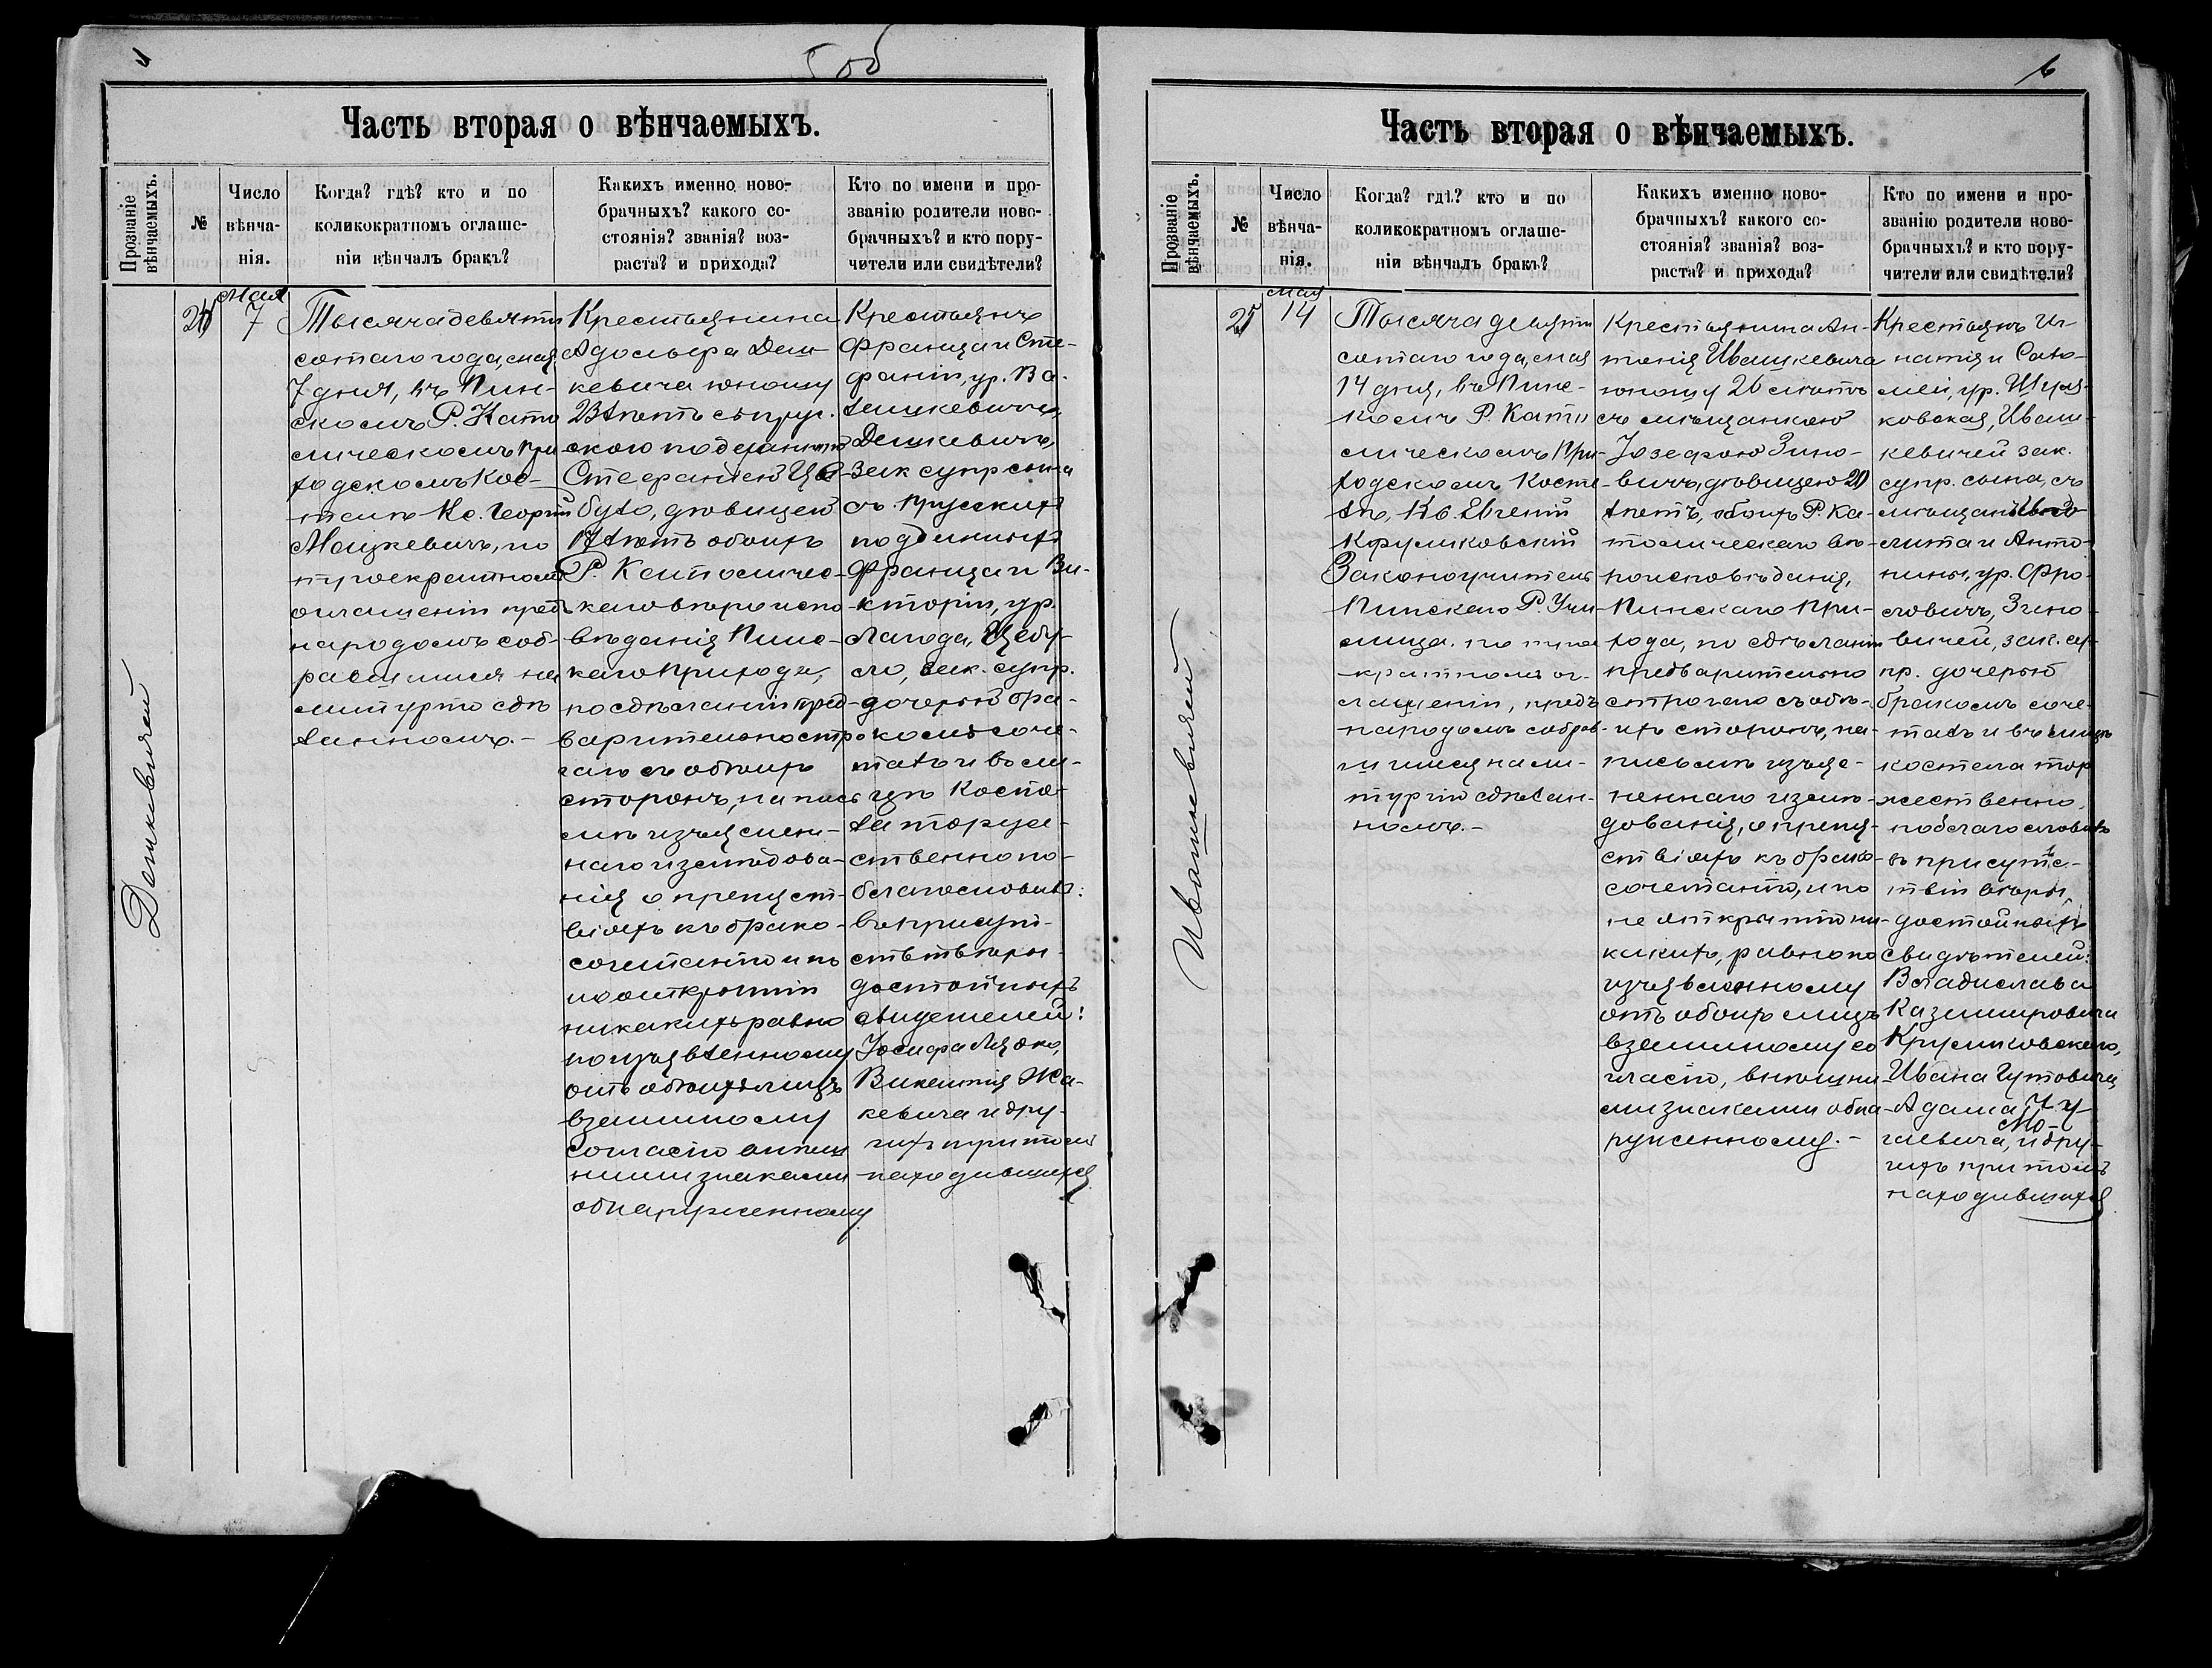 5 об
Часть вторая о вѣнчаемыхъ.
Прозваніе вѣнчаемыхъ.
№
Число вѣнча-нія.
Когда? гдѣ? кто и по
коликократномъ оглаше-
ніи вѣнчалъ бракъ?
Какихъ именно ново-
брачныхъ? какого со-
стоянія? званія? воз-
раста? и прихода?
Кто по имени и про-
званію родители ново-
брачныхъ? и кто пору-
чители или свидѣтели?
Мая
7
Тысяча девяти
сотаго года, мая
7 дня, въ Пин-
скомъ Р. Като
лическомъ При
ходскомъ Кос-
телѣ Кс. Георгій
Мацкевичъ, по
троекратномъ
оглашеніи предъ
народомъ соб-
равшимся на
литургію сдѣ
ланномъ.-
Крестьянина
Адольфа Деш-
кевича юношу
23 лѣтъ съ прус.
скою подданною
Стефаніею Це
було, дѣвицею
лѣтъ обоихъ
Р. Католичес-
каго вѣроиспо
вѣданія Пинс-
каго прихода,
по сдѣланіи пред-
варительно стро
гаго съ обоихъ
сторонъ, на пись
мѣ изъяснен-
наго изслѣдова-
нія о препятст-
віяхъ къ брако-
сочетанію и по
неоткрытіи
никакихъ равно
по изъявленному
отъ обоихъ лицъ
взаимному
согласію внѣш
ними знаками
обнаруженному
Крестьянъ
Франца и Сте-
фаніи, ур. Ва-
лешкевичей
Дешкевичъ,
зак супр сына
съ прусскихъ
подданныхъ
Франца и Ви-
кторіи, ур.
Лагода, Цебу-
ло, зак. супр.
дочерью бра-
комъ соче-
талъ и въ ли-
цѣ Косте-
ла торже-
ственно по-
благословилъ:
въ присутс-
ствіи вѣры
достойныхъ
свидетелей:
Іосифа
Викентія Жа-
кевича и дру-
гихъ при томъ
находившихся
Дешкевичей
6
Часть вторая о вѣнчаемыхъ.
Прозваніе вѣнчаемыхъ.
№
Число вѣнча-нія.
Когда? гдѣ? кто и по
коликократномъ оглаше-
ніи вѣнчалъ бракъ?
Какихъ именно ново-
брачныхъ? какого со-
стоянія? званія? воз-
раста? и прихода?
Кто по имени и про-
званію родители ново-
брачныхъ? и кто пору-
чители или свидѣтели?
25
Мая
14
Тысяча девяти
сотаго года, мая
14 дня, въ Пинс-
комъ Р. Като
лическомъ При-
ходскомъ Косте
лѣ, Кс. Евгеній
Крумковскій
Законоучитель
Пинскаго Р. Учи
лища. по трое
кратномъ ог-
лашеніи, предъ
народомъ собрав-
шимся на ли-
тургію сдѣлан-
номъ.-
Крестьянина Ан-
тонія Ивашкевича
юношу 26 лѣтъ
съ мѣщанкою
Іозефою Зино-
вичъ, дѣвицею 20
лѣтъ, обоихъ Р. Ка-
толическаго вѣ-
роисповѣданія,
Пинскаго При-
хода, по сдѣланіи
предварительно
строгаго съ обѣ-
ихъ сторонъ, на
письмѣ изъяс-
неннаго изслѣ-
дованія, о препят-
ствіяхъ къ брако-
сочетанію, и по
не открытію ни-
какихъ, равно по
изъявленному
отъ обоихъ лицъ
взаимному со
гласію, внѣшни
ми знаками обна
руженному.-
Крестьянъ Иг-
натія и Сало-
меи, ур. Шуля-
ковская, Иваш-
кевичей зак.
супр. сына, съ
мѣщанъ
лита и Анто-
нины, ур. Фро-
ловичъ, Зино-
вичей, зак. су-
пр. дочерью
бракомъ соче-
талъ и въ лицѣ
костела тор
жественно,
поблагословилъ
въ присутс-
твіи вѣры,
достойныхъ
свидѣтелей:
Владислава
Казимировича
Крумковскаго,
Ивана Гутовича
Адама
и дру-
гихъ при томъ
находившихся
Ивашкевичей